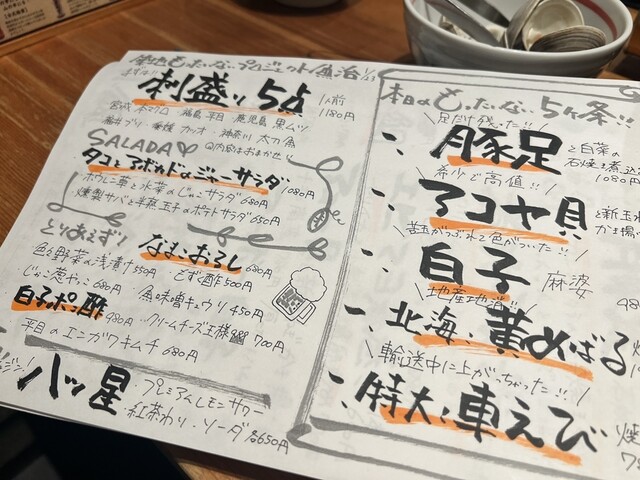 築地もったいないプロジェクト魚治
まずは!! 刺盛り5点 1人前 1180円
宮城 本マグロ・福島 平目・鹿児島 黒ムツ
福井 ブリ・愛媛 カツオ・神奈川 太刀魚
SALADA♡ @内容はおまかせ!!
タコとアボカドのジューサラダ 1080円
ホウレン草と水菜のじゃこサラダ 680円
燻製サバと半熟玉子のポテトサラダ 650円
とりあえず!
なまこおろし 680円
色々野菜の浅漬け 550円・もずく酢 500円
じゃこ葱やっこ 680円 魚味噌キュウリ 450円
白子ポン酢 980円・クリームチーズ王様 700円
平目のエンガワキムチ 680円
八ッ星 ・プレミアムレモンサワー
・紅茶わり・ソーダ 各650円
本日のもったいない5ヶ条!!
\足だけ残った!!/
一、豚足 と白菜の
石焼き煮込み
1080
\希少で高値!!/
一、アコヤ貝 と新玉ねぎ
かき揚げ
\苦玉がつぶれて色がついた!!/
一、白子 麻婆
\地産地消!!/
一、北海、黄めばる
\輸送中に上がっちゃった!!/
一、特大、車えび